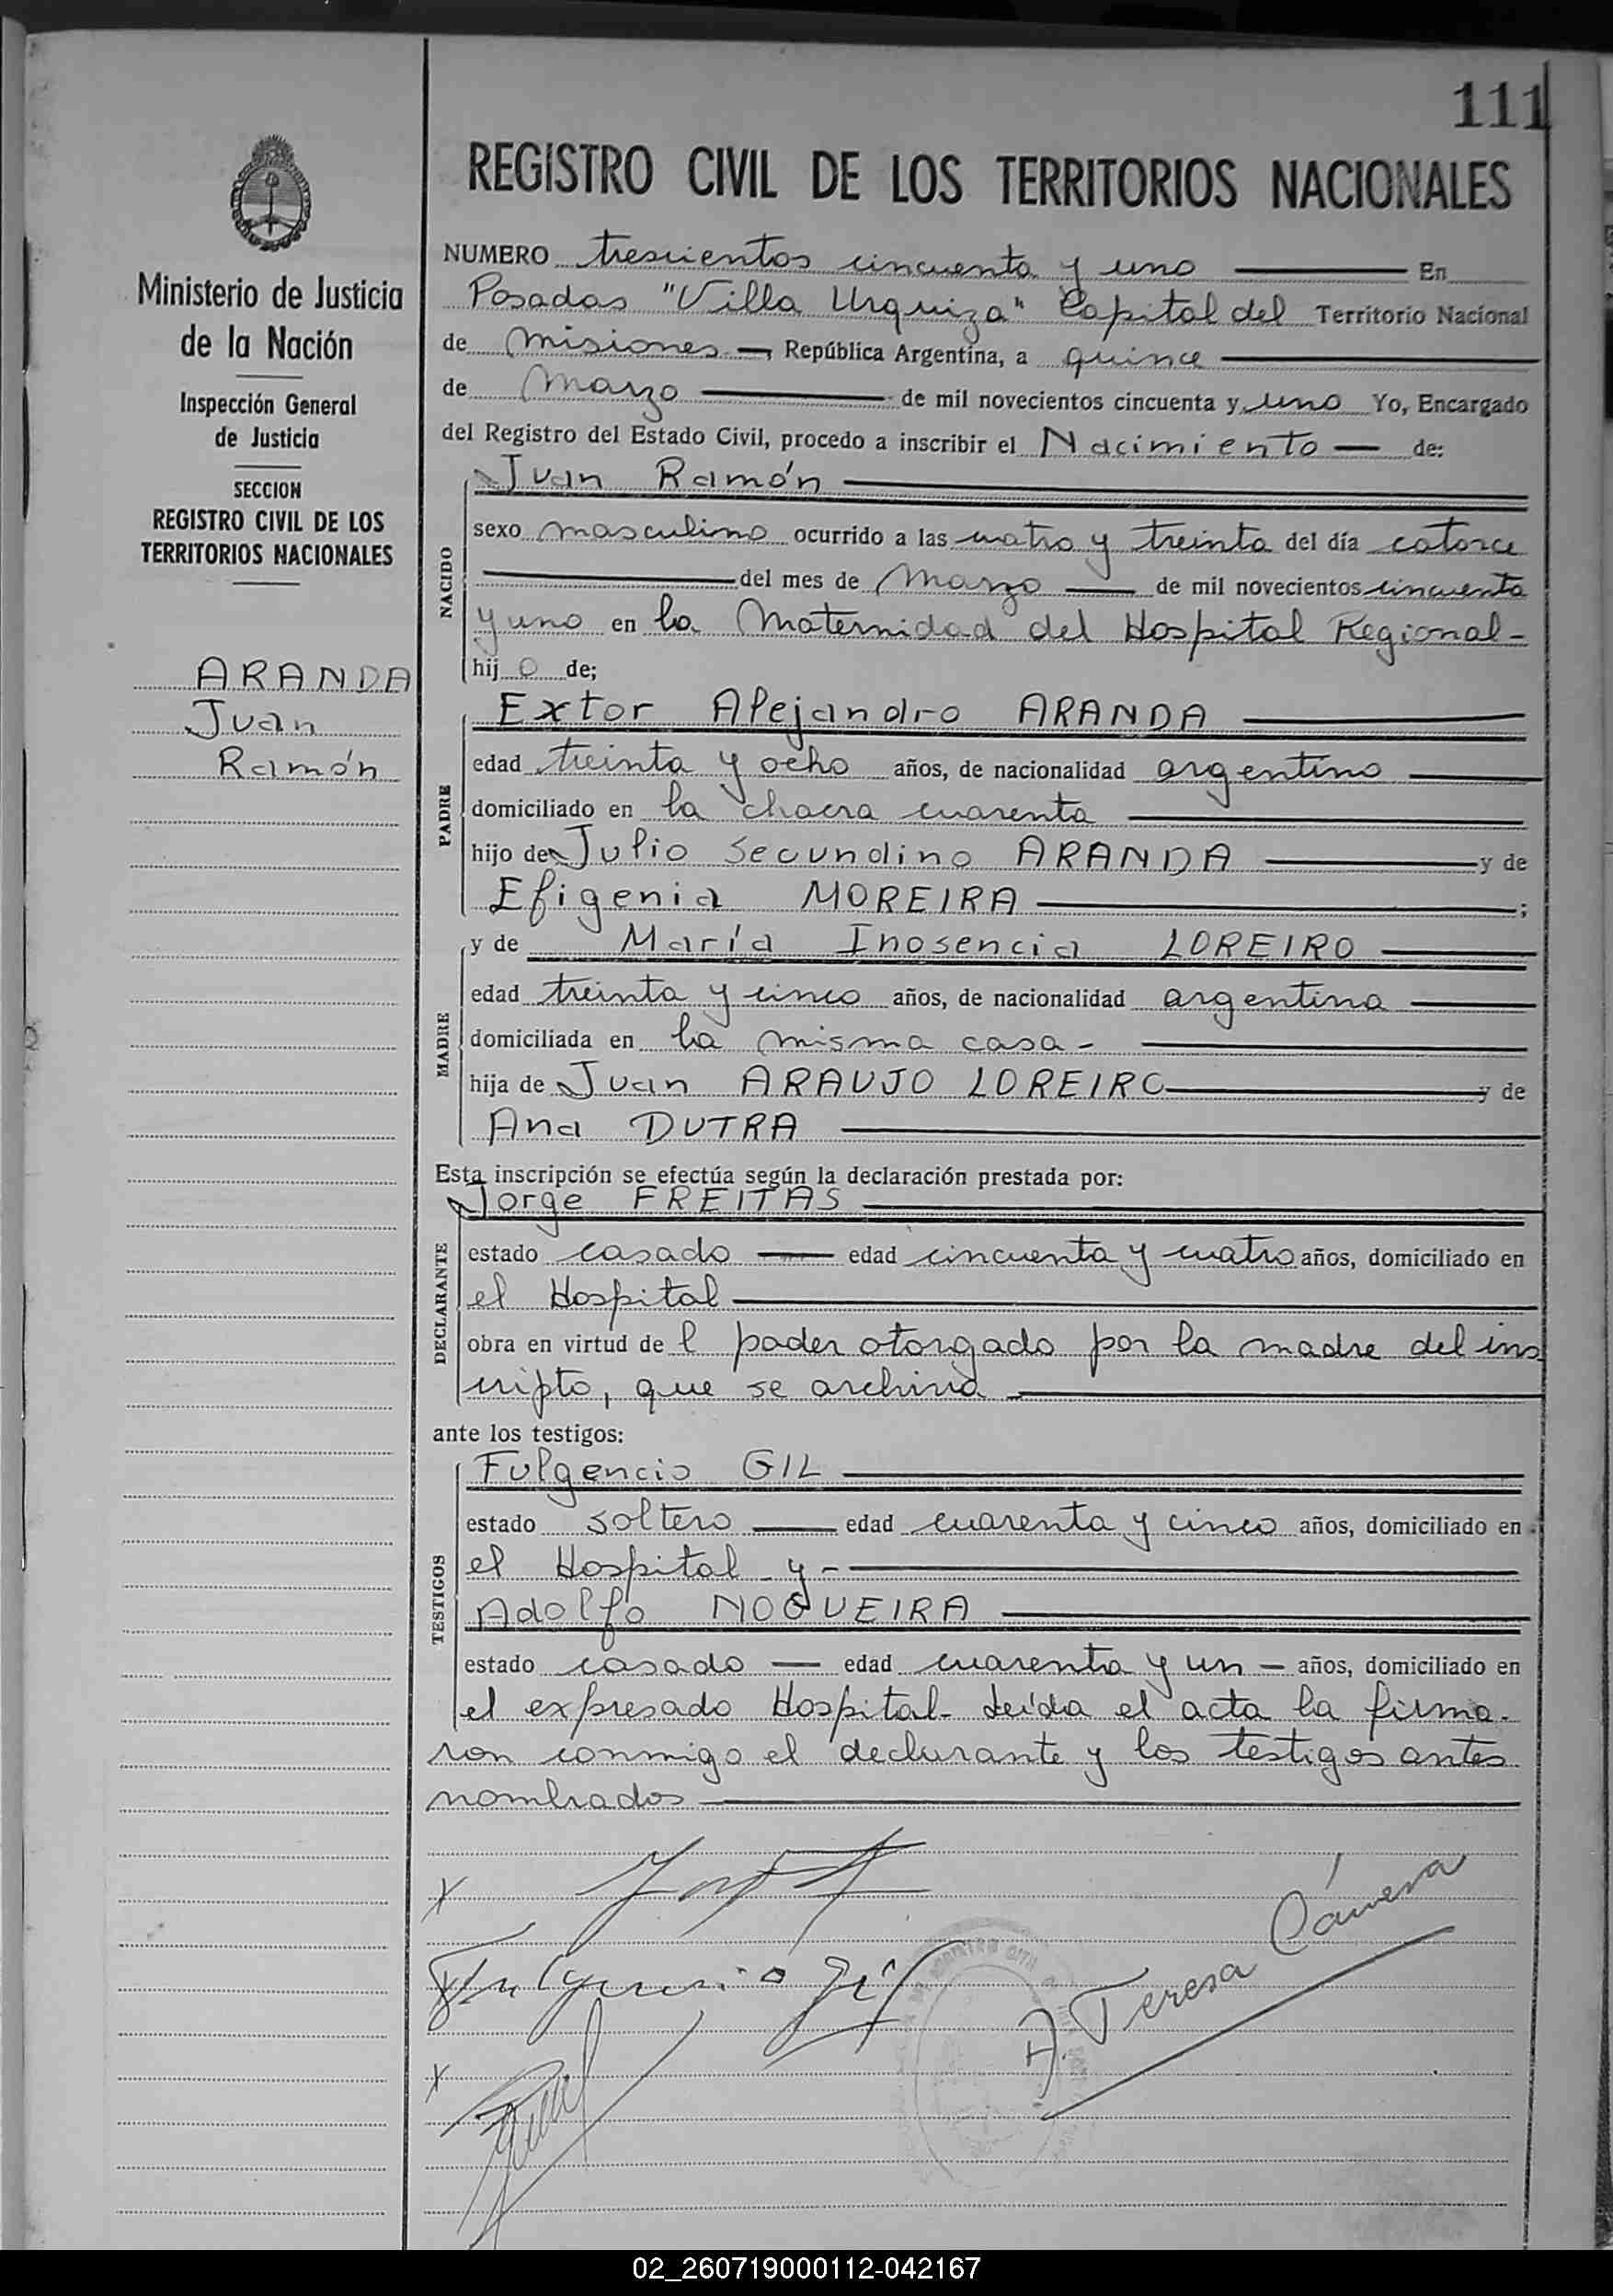 111
REGISTRO CIVIL DE LOS TERRITORIOS NACIONALES
Ministerio de Justicia
de la Nación
Inspección General
de Justicia
SECCION
REGISTRO CIVIL DE LOS
TERRITORIOS NACIONALES
ARANDA
Juan
Ramón
NUMERO trescientos cincuenta y uno En
Posadas "Villa Urquiza" Capital del Territorio Nacional
de Misiones, República Argentina, a quince
de Marzo de mil novecientos cincuenta y uno Yo, Encargado
del Registro del Estado Civil, procedo a inscribir el Nacimiento de:
NACIDO
Juan Ramón
sexo masculino ocurrido a las cuatro y treinta del día catorce
del mes de Marzo de mil novecientos cincuenta
y uno en la Maternidad del Hospital Regional-
hijo de;
PADRE
Extor Alejandro ARANDA
edad treinta y ocho años, de nacionalidad argentino
domiciliado en la chacra cuarenta
hijo de Julio Secundino ARANDA y de
Efigenia MOREIRA ;
MADRE
y de María Inosencia LOREIRO
edad treinta y cinco años, de nacionalidad argentina
domiciliada en la misma casa-
hija de Juan ARAUJO LOREIRO y de
Ana DUTRA
Esta inscripción se efectúa según la declaración prestada por:
DECLARANTE
Jorge FREITAS
estado casado edad cincuenta y cuatro años, domiciliado en
el Hospital
obra en virtud del poder otorgado por la madre del ins
cripto, que se archiva
ante los testigos:
TESTIGOS
Fulgencio GIL
estado soltero edad cuarenta y cinco años, domiciliado en
el Hospital y-
Adolfo NOGUEIRA
estado casado edad cuarenta y un años, domiciliado en
el expresado Hospital- Leída el acta la firma-
ron conmigo el declarante y los testigos antes
nombrados
x
Fulgencio Gil
A. Teresa Cámera
x
02_260719000112-042167